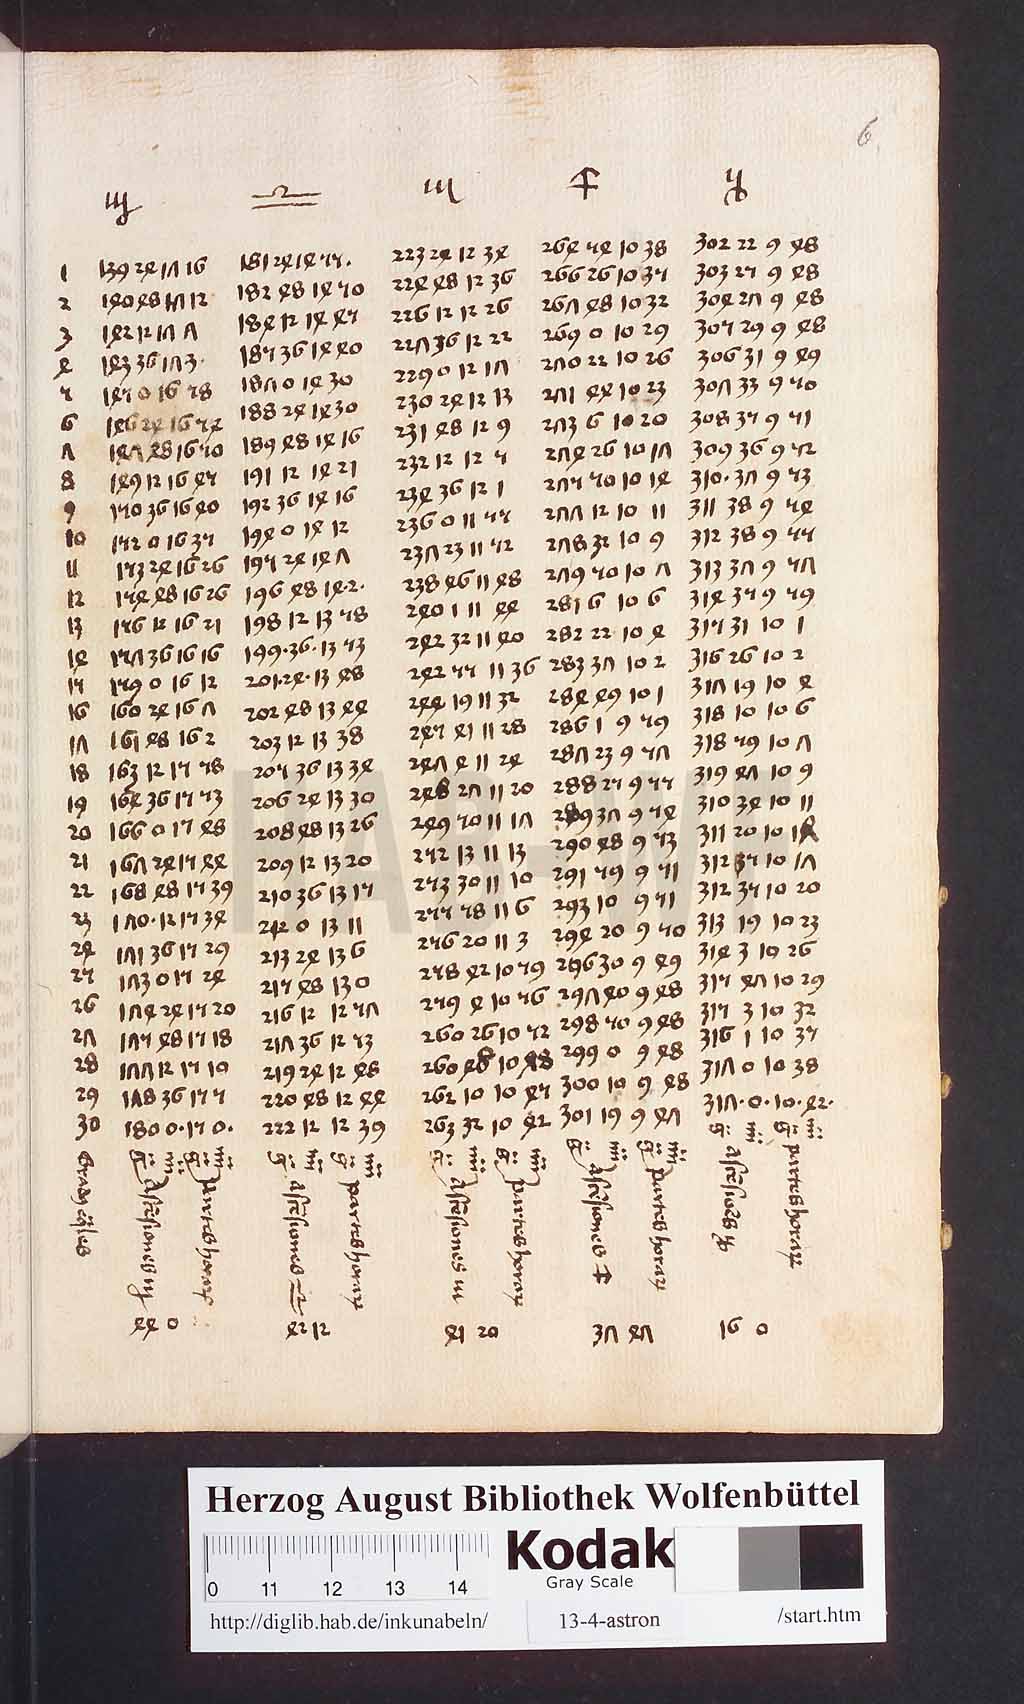 6
♍ ♎ ♏ ♐ ♑
1 139 24 17 16 181 24 14 55. 223 24 12 34 264 54 10 38 302 22 9 48
2 140 48 17 12 182 48 14 50 224 48 12 36 266 26 10 35 303 25 9 48
3 142 12 17 7 184 12 14 45 226 12 12 26 267 48 10 32 304 27 9 48
4 143 36 17 3. 185 36 14 40 227 36 12 22 269 0 10 29 305 29 9 48
5 145 0 16 58 187 0 14 30 229 0 12 17 270 22 10 26 306 31 9 49
6 146 24 16 54 188 24 14 30 230 24 12 13 271 44 10 23 307 33 9 50
7 147 48 16 50 189 48 14 16 231 48 12 9 273 6 10 20 308 35 9 51
8 149 12 16 45 191 12 14 21 232 12 12 5 274 26 10 17 309 36 9 52
9 150 36 16 40 192 36 14 16 234 36 12 1 275 50 10 14 310. 37 9 53
10 152 0 16 35 194 0 14 12 236 0 11 55 277 12 10 11 311 38 9 54
11 153 24 16 26 195 24 14 7 237 23 11 52 278 32 10 9 312 38 9 55
12 154 48 16 26 196 48 14 2. 238 46 11 48 279 50 10 7 313 37 9 57
13 156 12 16 21 198 12 13 58 240 1 11 44 281 6 10 6 314 35 9 59
14 157 36 16 16 199.36.13 53 242 32 11 40 282 22 10 4 315 31 10 1
15 159 0 16 12 201.24.13 48 242 55 11 36 283 37 10 2 316 26 10 2
16 160 24 16 7 202 48 13 44 244 19 11 32 284 49 10 1 317 19 10 4
17 161 48 16 2 203 12 13 38 245 41 11 28 286 1 9 59 318 10 10 6
18 163 12 15 58 205 36 13 34 247 4 11 24 287 23 9 57 318 59 10 7
19 164 36 15 53 206 24 13 30 248 27 11 20 288 25 9 55 319 47 10 9
20 166 0 15 48 208 48 13 26 249 50 11 17 289 37 9 54 310 34 10 11
21 167 24 15 44 209 12 13 20 252 13 11 13 290 48 9 53 311 20 10
22 168 48 15 39 210 36 13 15 253 30 11 10 291 59 9 51 312 35 10 17
23 170.12 15 34 212 0 13 11 255 58 11 6 293 10 9 51 312 35 10 20
24 171 36 15 29 213 24 13 6 256 20 11 3 294 20 9 50 313 19 10 23
25 173 0 15 24 215 48 13 0 258 42 10 59 296 30 9 49 314 3 10 26
26 174 24 15 20 216 12 12 57 259 4 10 56 297 40 9 48 315 47 10 29
27 175 48 15 18 217 36 12 53 260 26 10 52 298 50 9 48 315 3 10 32
28 177 12 15 10 219 24 12 48 260 48 10 48 299 0 9 48 316 1 10 35
29 178 36 15 5 220 48 12 44 262 10 10 45 300 10 9 48 317 0 10 38
30 180 0.15 0. 222 12 12 39 263 32 10 42 301 19 9 47 317.0.10.42.
ascēsiones ♍ partes horaꝝ ascēsiones ♎ partes horaꝝ ascēsiones ♏ partes horaꝝ ascēsiones ♐ partes horaꝝ ascēsiões ♑ partes horaꝝ
44 0 42 12 41 20 37 47 16 0
Herzog August Bibliothek Wolfenbüttel
Kodak
Gray Scale
0 11 12 13 14
http://diglib.hab.de/inkunabeln/ 13-4-astron /start.htm